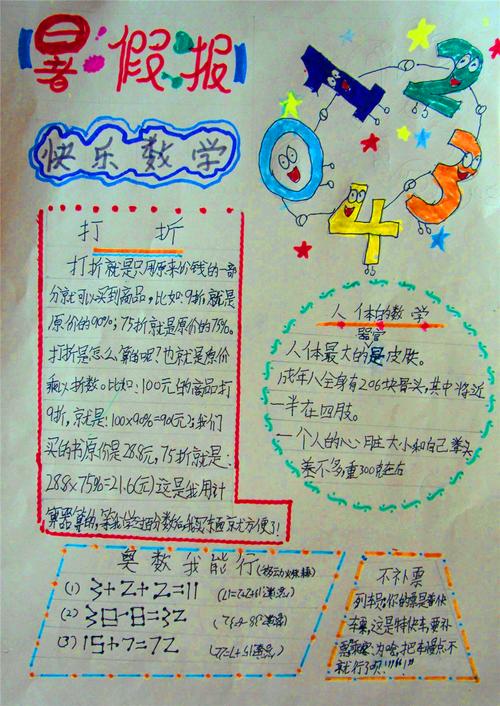 暑假报
快乐数学
1 2 3 4 0
打 折
打折就是只用原来价钱的一部
分就可以买到商品,比如:9折就是
原价的90%;75折就是原价的75%。
打折是怎么算的呢?也就是原价
乘以折数。比如:100元的商品打
9折,就是:100×90%=90元;我们
买的书原价是28.8元,75折就是:
28.8×75%=21.6(元)这是我用计
算器算的,等我学
人体的数学
器官
人体最大的是皮肤。
成年人全身有206块骨头,其中将近
一半在四肢。
一个人的心脏大小和自己拳头
差不多重300克左右
奥数我能行(移动火柴棒)
(1) 3+2+2=11
(2) 30-8=32
(3) 15+7=72
不补票
列车员:你的票是普快
车票,这是特快车,要补
票
就行了呗